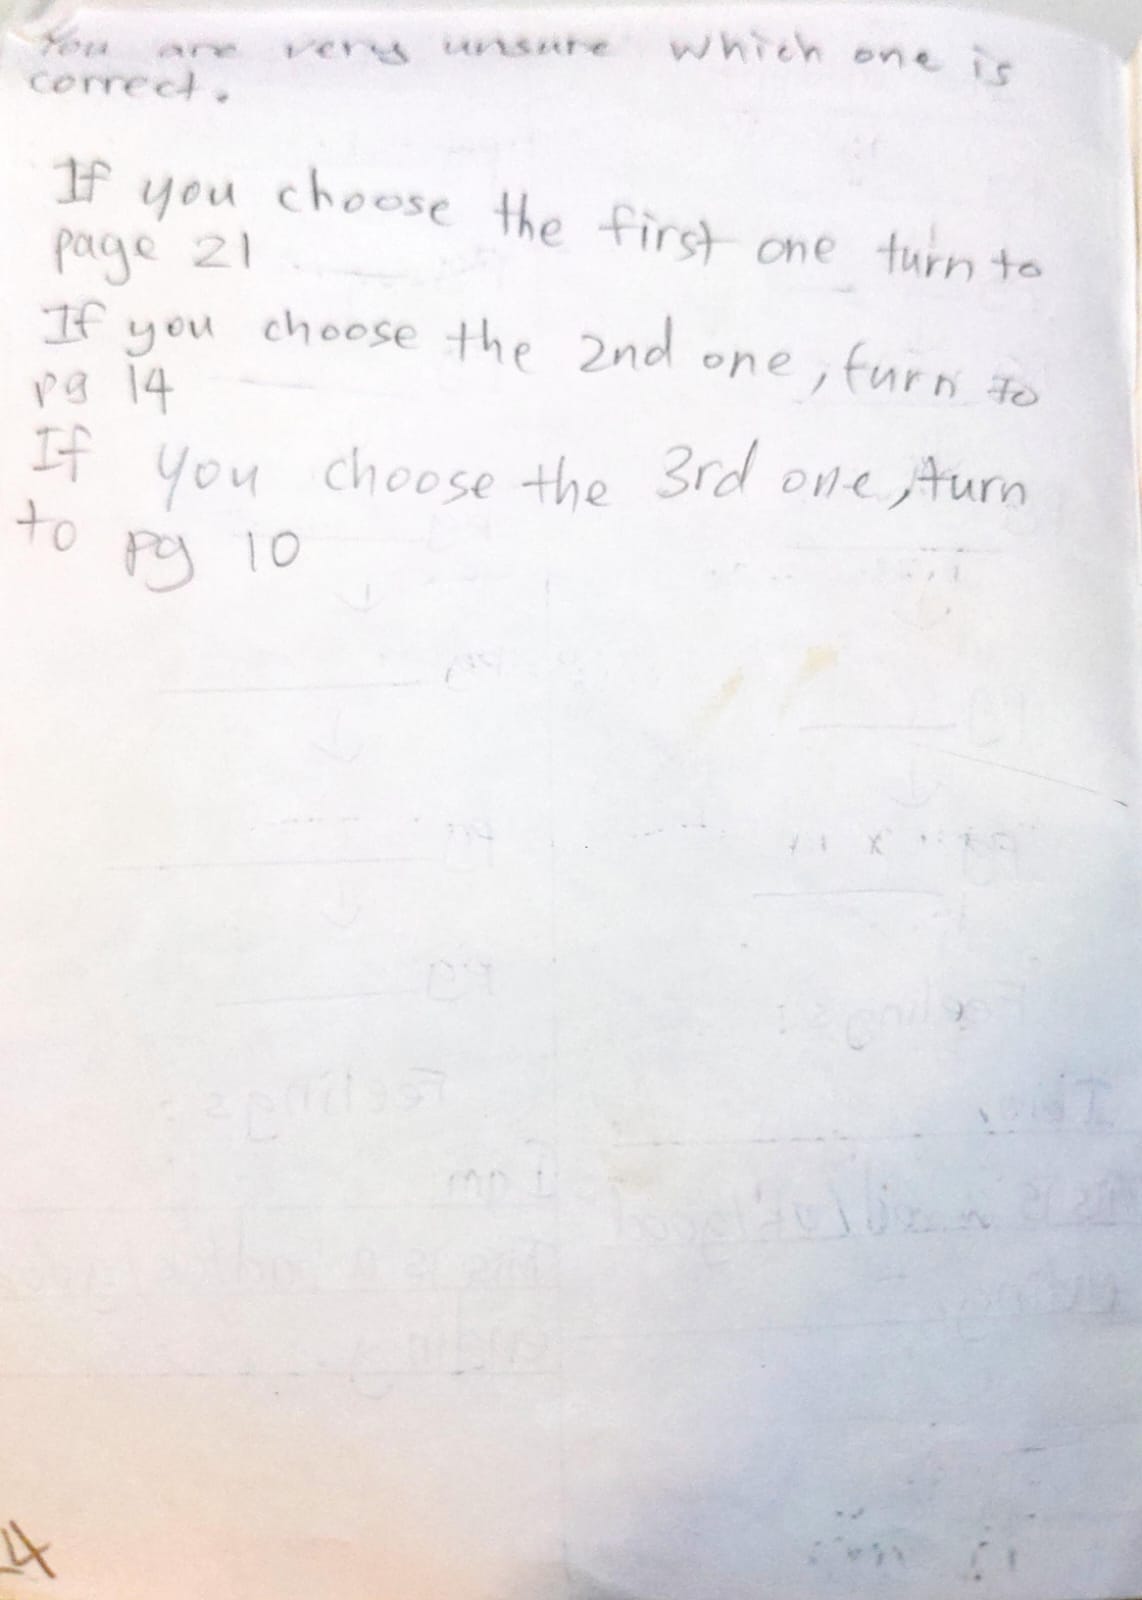 You are very unsure which one is
correct.
If you choose the first one turn to
page 21
If you choose the 2nd one, turn to
pg 14
If you choose the 3rd one, turn
to pg 10
4